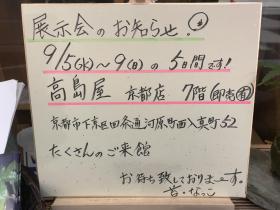 展示会のお知らせ!
9/5(水)〜9(日)の5日間です!
高島屋 京都店 7階 即売有
京都市下京区四条通河原町西入真町52
たくさんのご来館
お待ち致しておりまーす。
苔・なっこ